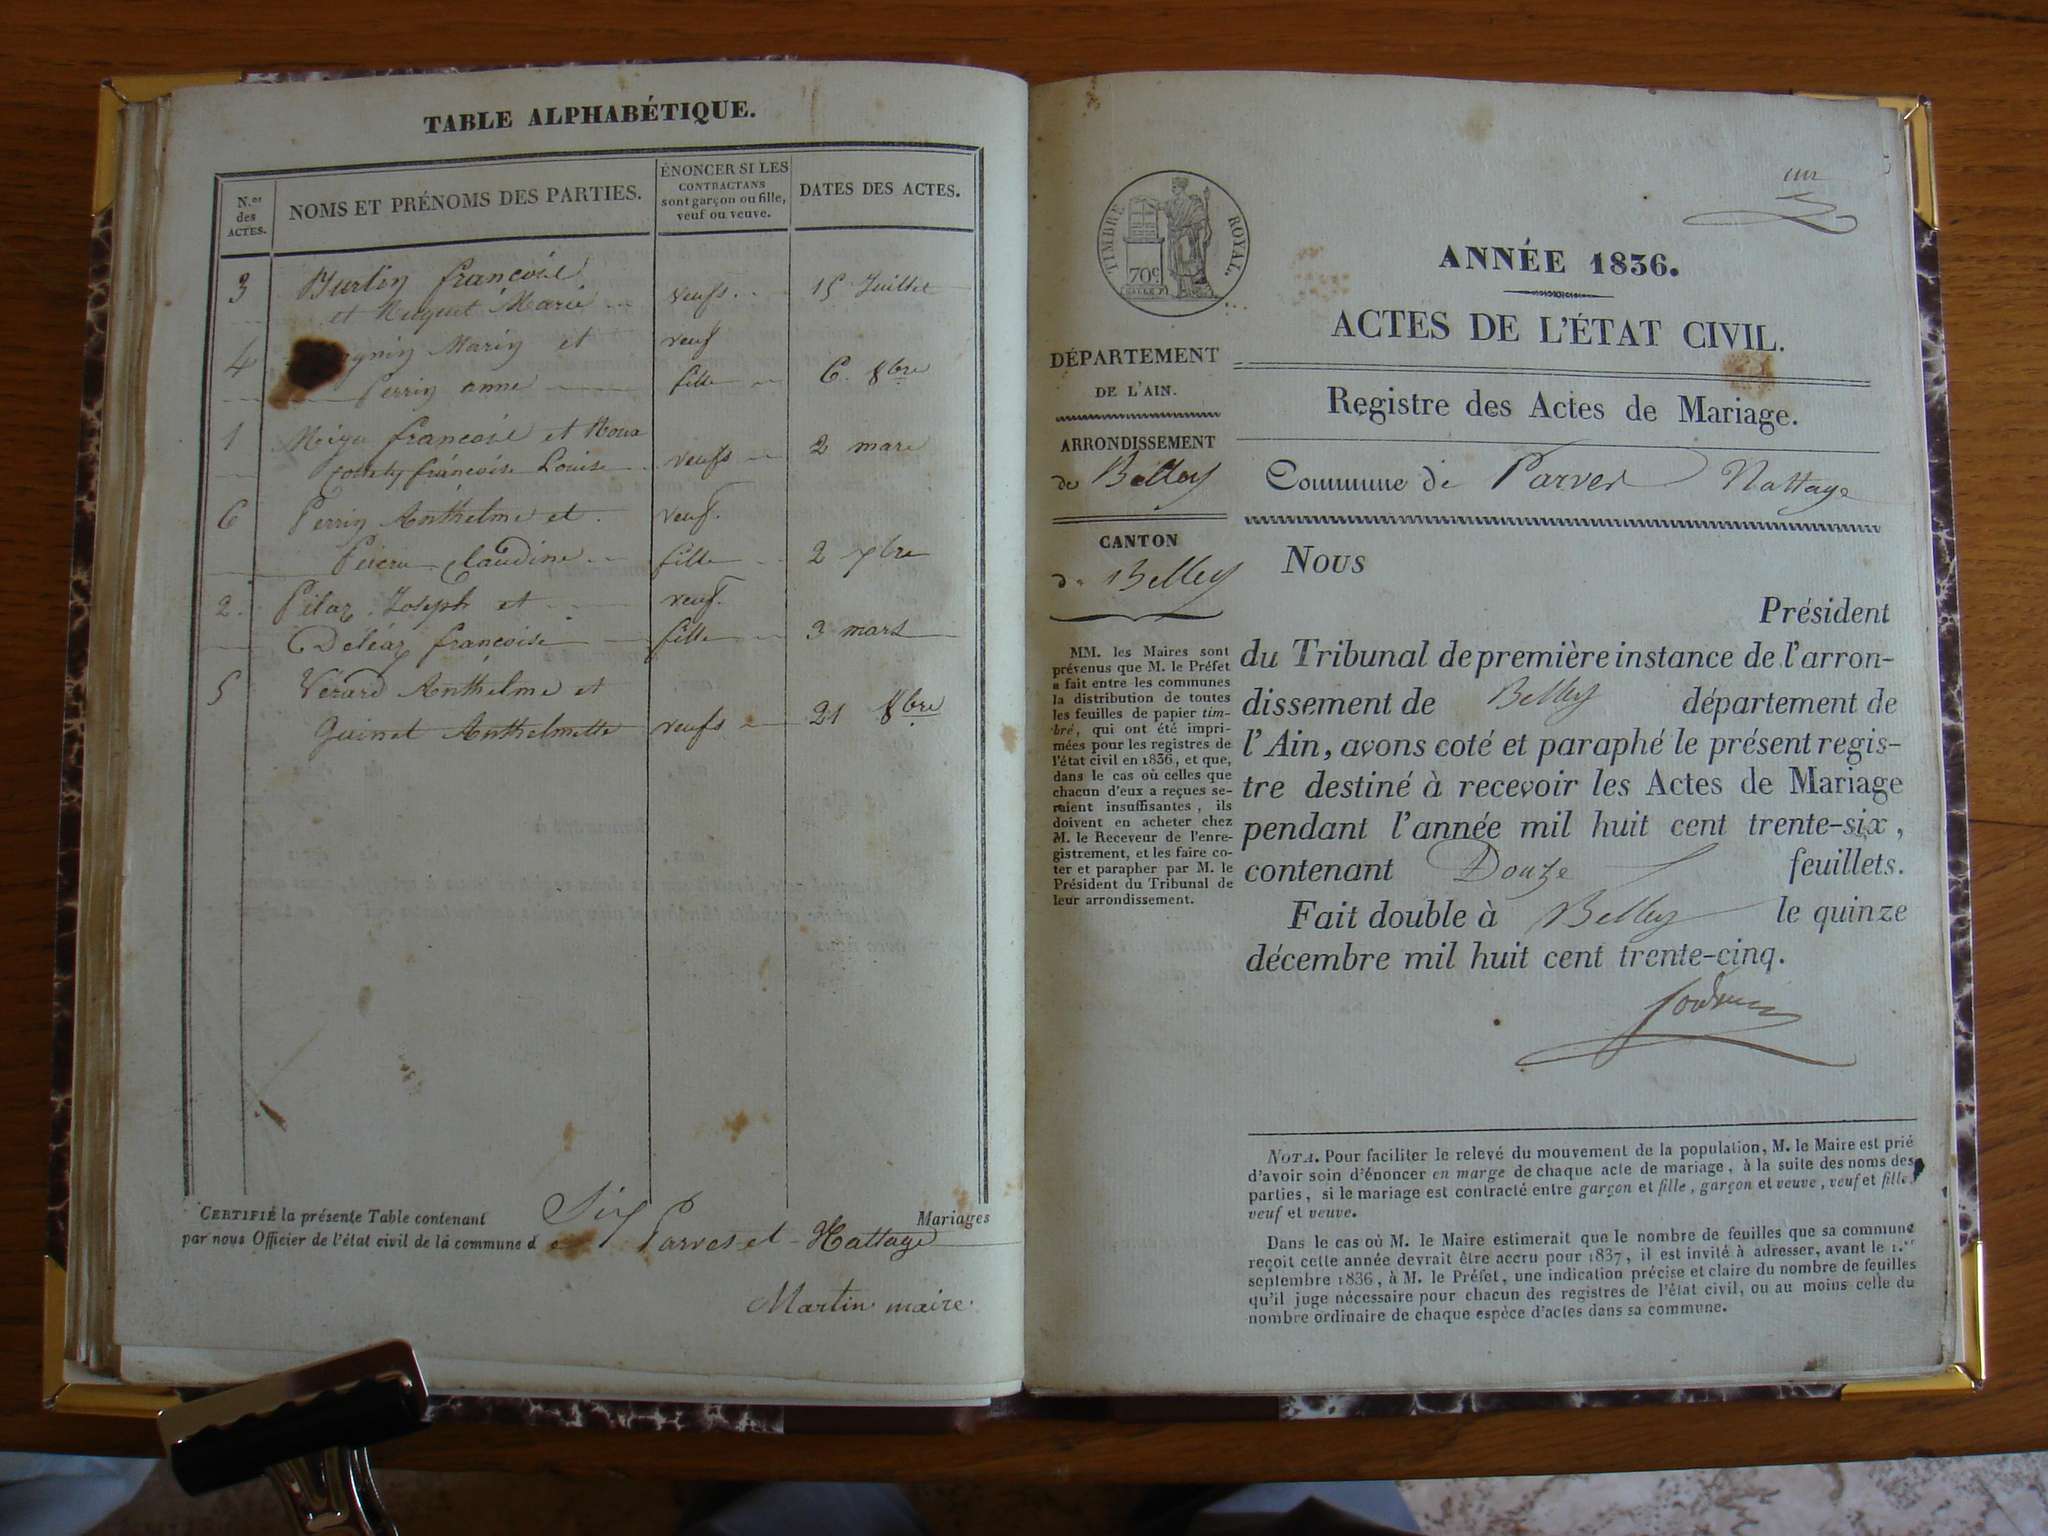 TABLE ALPHABÉTIQUE.
N.os des ACTES.
NOMS ET PRÉNOMS DES PARTIES.
ÉNONCER SI LES
CONTRACTANS
sont garçon ou fille,
veuf ou veuve.
DATES DES ACTES.
3 françoise
et Marie veufs 15 Juillet
4 Marin et veuf
Perrin anne fille 6. 8bre
1 françoise et
françoise Louise veufs 2 mars
6 Perrin Anthelme et veuf.
Claudine fille 2 7bre
2. Pilaz Joseph et veuf.
Deléaz françoise fille 3 mars
5 Verard Anthelme et
Guinet Anthelmette veufs 21 8bre
CERTIFIÉ la présente Table contenant Six Mariages
par nous Officier de l'état civil de la commune de Parves et Nattage
Martin maire.
un
TIMBRE ROYAL.
70c
ANNÉE 1836.
ACTES DE L'ÉTAT CIVIL.
Registre des Actes de Mariage.
Commune de Parves Nattage
DÉPARTEMENT
DE L'AIN.
ARRONDISSEMENT
de Belley
CANTON
de Belley
MM. les Maires sont
prévenus que M. le Préfet
a fait entre les communes
la distribution de toutes
les feuilles de papier tim-
bré, qui ont été impri-
mées pour les registres de
l'état civil en 1836, et que,
dans le cas où celles que
chacun d'eux a reçues se-
raient insuffisantes, ils
doivent en acheter chez
M. le Receveur de l'enre-
gistrement, et les faire co-
ter et parapher par M. le
Président du Tribunal de
leur arrondissement.
Nous
Président
du Tribunal de première instance de l'arron-
dissement de Belley département de
l'Ain, avons coté et paraphé le présent regis-
tre destiné à recevoir les Actes de Mariage
pendant l'année mil huit cent trente-six,
contenant Douze feuillets.
Fait double à Belley le quinze
décembre mil huit cent trente-cinq.
NOTA. Pour faciliter le relevé du mouvement de la population, M. le Maire est prié
d'avoir soin d'énoncer en marge de chaque acte de mariage, à la suite des noms des
parties, si le mariage est contracté entre garçon et fille, garçon et veuve, veuf et fille,
veuf et veuve.
Dans le cas où M. le Maire estimerait que le nombre de feuilles que sa commune
reçoit cette année devrait être accru pour 1837, il est invité à adresser, avant le 1.er
septembre 1836, à M. le Préfet, une indication précise et claire du nombre de feuilles
qu'il juge nécessaire pour chacun des registres de l'état civil, ou au moins celle du
nombre ordinaire de chaque espèce d'actes dans sa commune.